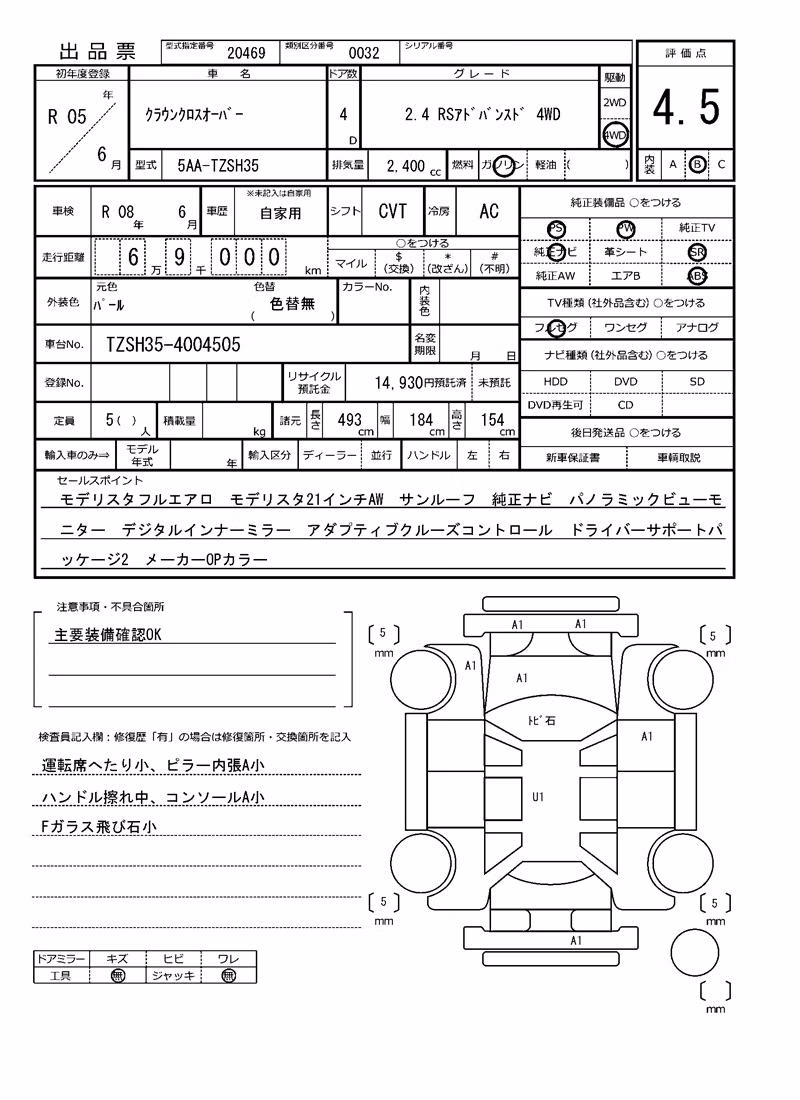 出品票 型式指定番号 20469 類別区分番号 0032 シリアル番号 評価点
初年度登録 車名 ドア数 グレード 駆動
R 05 年 6 月 クラウンクロスオーバー 4 D 2.4 RSアドバンスド 4WD 2WD 4WD 4.5
型式 5AA-TZSH35 排気量 2,400 cc 燃料 ガソリン 軽油 ( ) 内装 A B C
車検 R 08 年 6 月 車歴 ※未記入は自家用 自家用 シフト CVT 冷房 AC 純正装備品 ○をつける
PS PW 純正TV
走行距離 6 万 9 千 0 0 0 km ○をつける
マイル $(交換) *(改ざん) #(不明)
純正ナビ 革シート SR
純正AW エアB ABS
外装色 元色 パール 色替 色替無 ( ) カラーNo. 内装色
TV種類(社外品含む)○をつける
フルセグ ワンセグ アナログ
車台No. TZSH35-4004505 名変期限 月 日
ナビ種類(社外品含む)○をつける
HDD DVD SD
登録No. リサイクル預託金 14,930円預託済 未預託
DVD再生可 CD
定員 5( )人 積載量 kg 諸元 長さ 493 cm 幅 184 cm 高さ 154 cm
後日発送品 ○をつける
輸入車のみ⇒ モデル年式 年 輸入区分 ディーラー 並行 ハンドル 左 右 新車保証書 車輌取説
セールスポイント
モデリスタフルエアロ モデリスタ21インチAW サンルーフ 純正ナビ パノラミックビューモ
ニター デジタルインナーミラー アダプティブクルーズコントロール ドライバーサポートパ
ッケージ2 メーカーOPカラー
注意事項・不具合箇所
主要装備確認OK
検査員記入欄:修復歴「有」の場合は修復箇所・交換箇所を記入
運転席へたり小、ピラー内張A小
ハンドル擦れ中、コンソールA小
Fガラス飛び石小
ドアミラー キズ ヒビ ワレ
工具 無 ジャッキ 無
A1 A1
5 mm 5 mm
A1
A1
トビ石
A1
U1
5 mm 5 mm
A1
mm